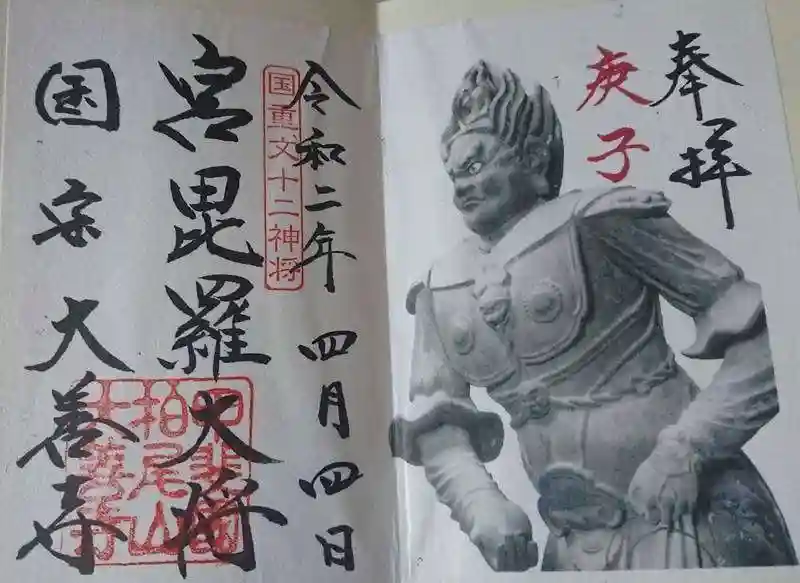 奉拝
庚子
令和二年 四月四日
国重文十二神将
宮毘羅大将
国宝 大善寺
甲斐国
柏尾山
大善寺